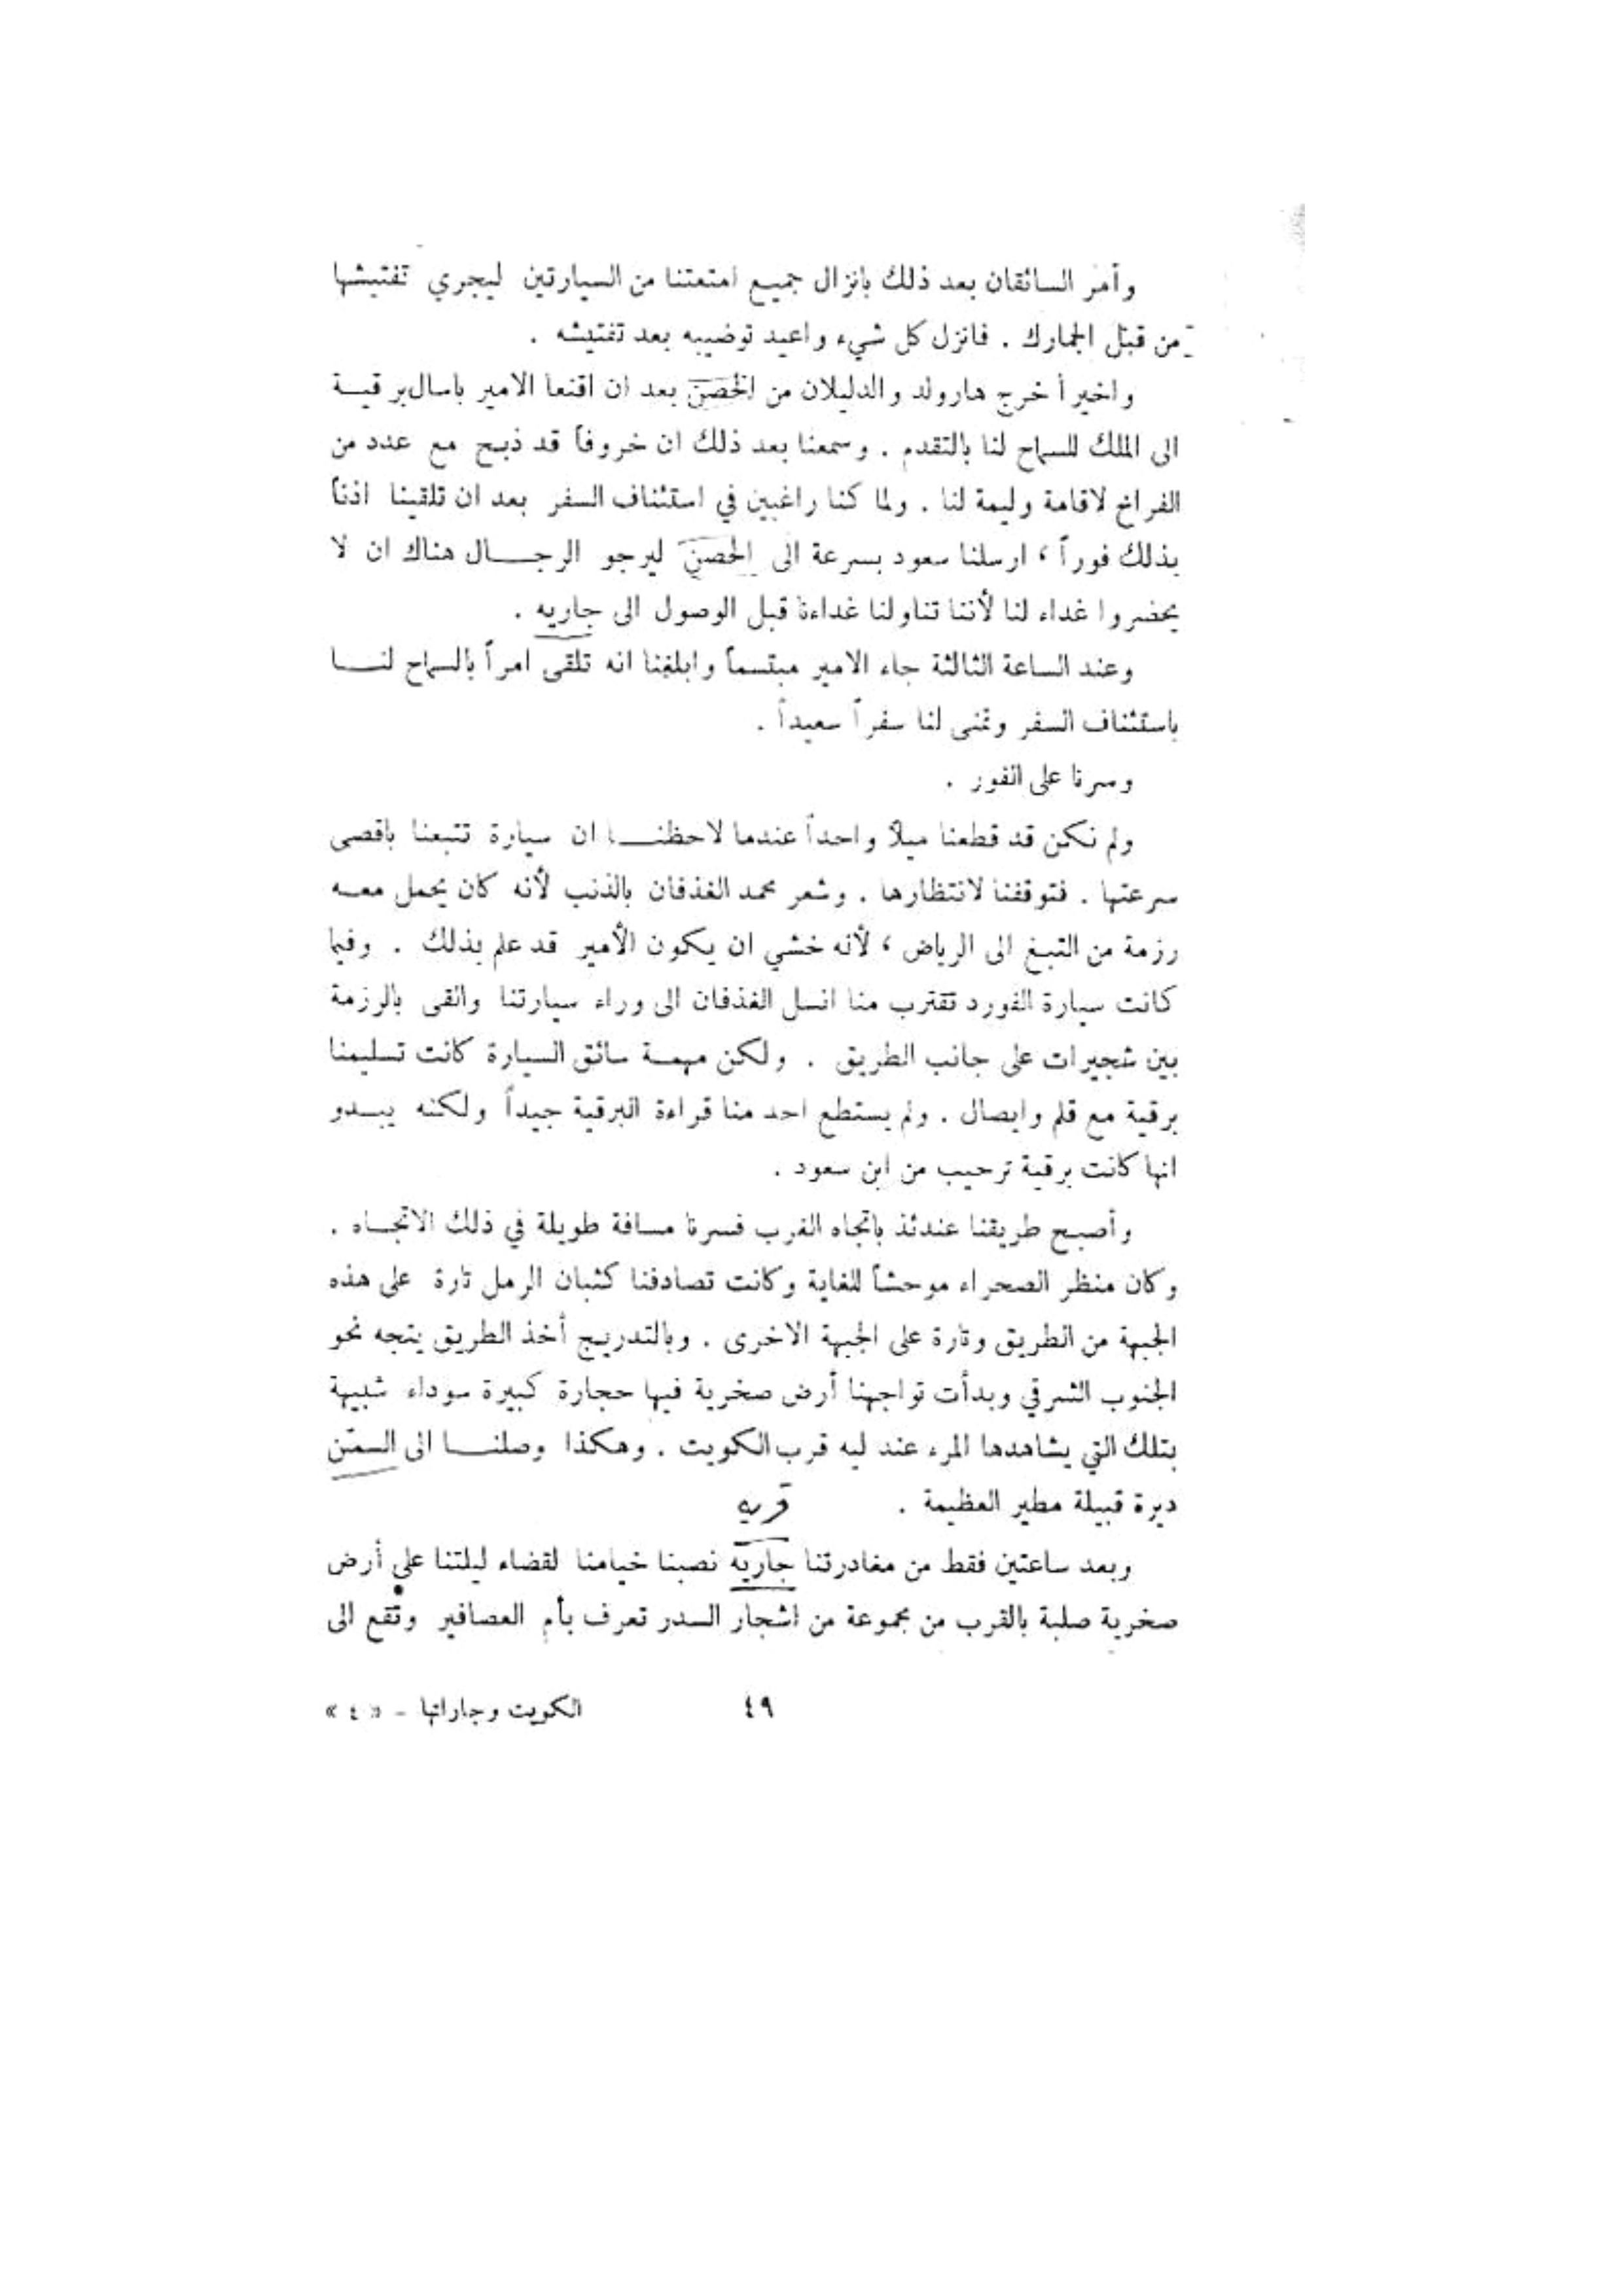 وأمر السائقان بعد ذلك بانزال جميع امتعتنا من السيارتين ليجري تفتيشها
من قبل الجمارك . فانزل كل شيء واعيد توضيبه بعد تفتيشه .
واخيراً خرج هارولد والدليلان من الحصن بعد ان اقنعا الامير باسال برقيـــة
الى الملك للسماح لنا بالتقدم . وسمعنا بعد ذلك ان خروفاً قد ذبح مع عدد من
الفراخ لاقامة وليمة لنا . ولما كنا راغبين في استئناف السفر بعد ان تلقينا اذناً
بذلك فوراً ، ارسلنا سعود بسرعة الى الحصن ليرجو الرجـــال هناك ان لا
يحضروا غداء لنا لأننا تناولنا غداءنا قبل الوصول الى جاريه .
وعند الساعة الثالثة جاء الامير مبتسماً وابلغنا انه تلقى امراً بالسماح لنـــا
باستئناف السفر وتمنى لنا سفراً سعيداً .
وسرنا على الفور .
ولم نكن قد قطعنا ميلاً واحداً عندما لاحظنـــا ان سيارة تتبعنا باقصى
سرعتها . فتوقفنا لانتظارها . وشعر محمد الغذفان بالذنب لأنه كان يحمل معـــه
رزمة من التبغ الى الرياض ، لأنه خشي ان يكون الأمير قد علم بذلك . وفيما
كانت سيارة الفورد تقترب منا انسل الغذفان الى وراء سيارتنا والقى بالرزمة
بين شجيرات على جانب الطريق . ولكن مهمـــة سائق السيارة كانت تسليمنا
برقية مع قلم وايصال . ولم يستطع احد منا قراءة البرقية جيداً ولكنه يبـــدو
انها كانت برقية ترحيب من ابن سعود .
وأصبح طريقنا عندئذ باتجاه الغرب فسرنا مسافة طويلة في ذلك الاتجـــاه .
وكان منظر الصحراء موحشاً للغاية وكانت تصادفنا كثبان الرمل تارة على هذه
الجهة من الطريق وتارة على الجهة الاخرى . وبالتدريج أخذ الطريق يتجه نحو
الجنوب الشرقي وبدأت تواجهنا أرض صخرية فيها حجارة كبيرة سوداء شبيهة
بتلك التي يشاهدها المرء عند ليه قرب الكويت . وهكذا وصلنـــا الى السمّن
ديرة قبيلة مطير العظيمة .
قريه
وبعد ساعتين فقط من مغادرتنا جاريه نصبنا خيامنا لقضاء ليلتنا على أرض
صخرية صلبة بالقرب من مجموعة من اشجار السدر تعرف بأم العصافير وتقع الى
٤٩
الكويت وجاراتها – « ٤ »